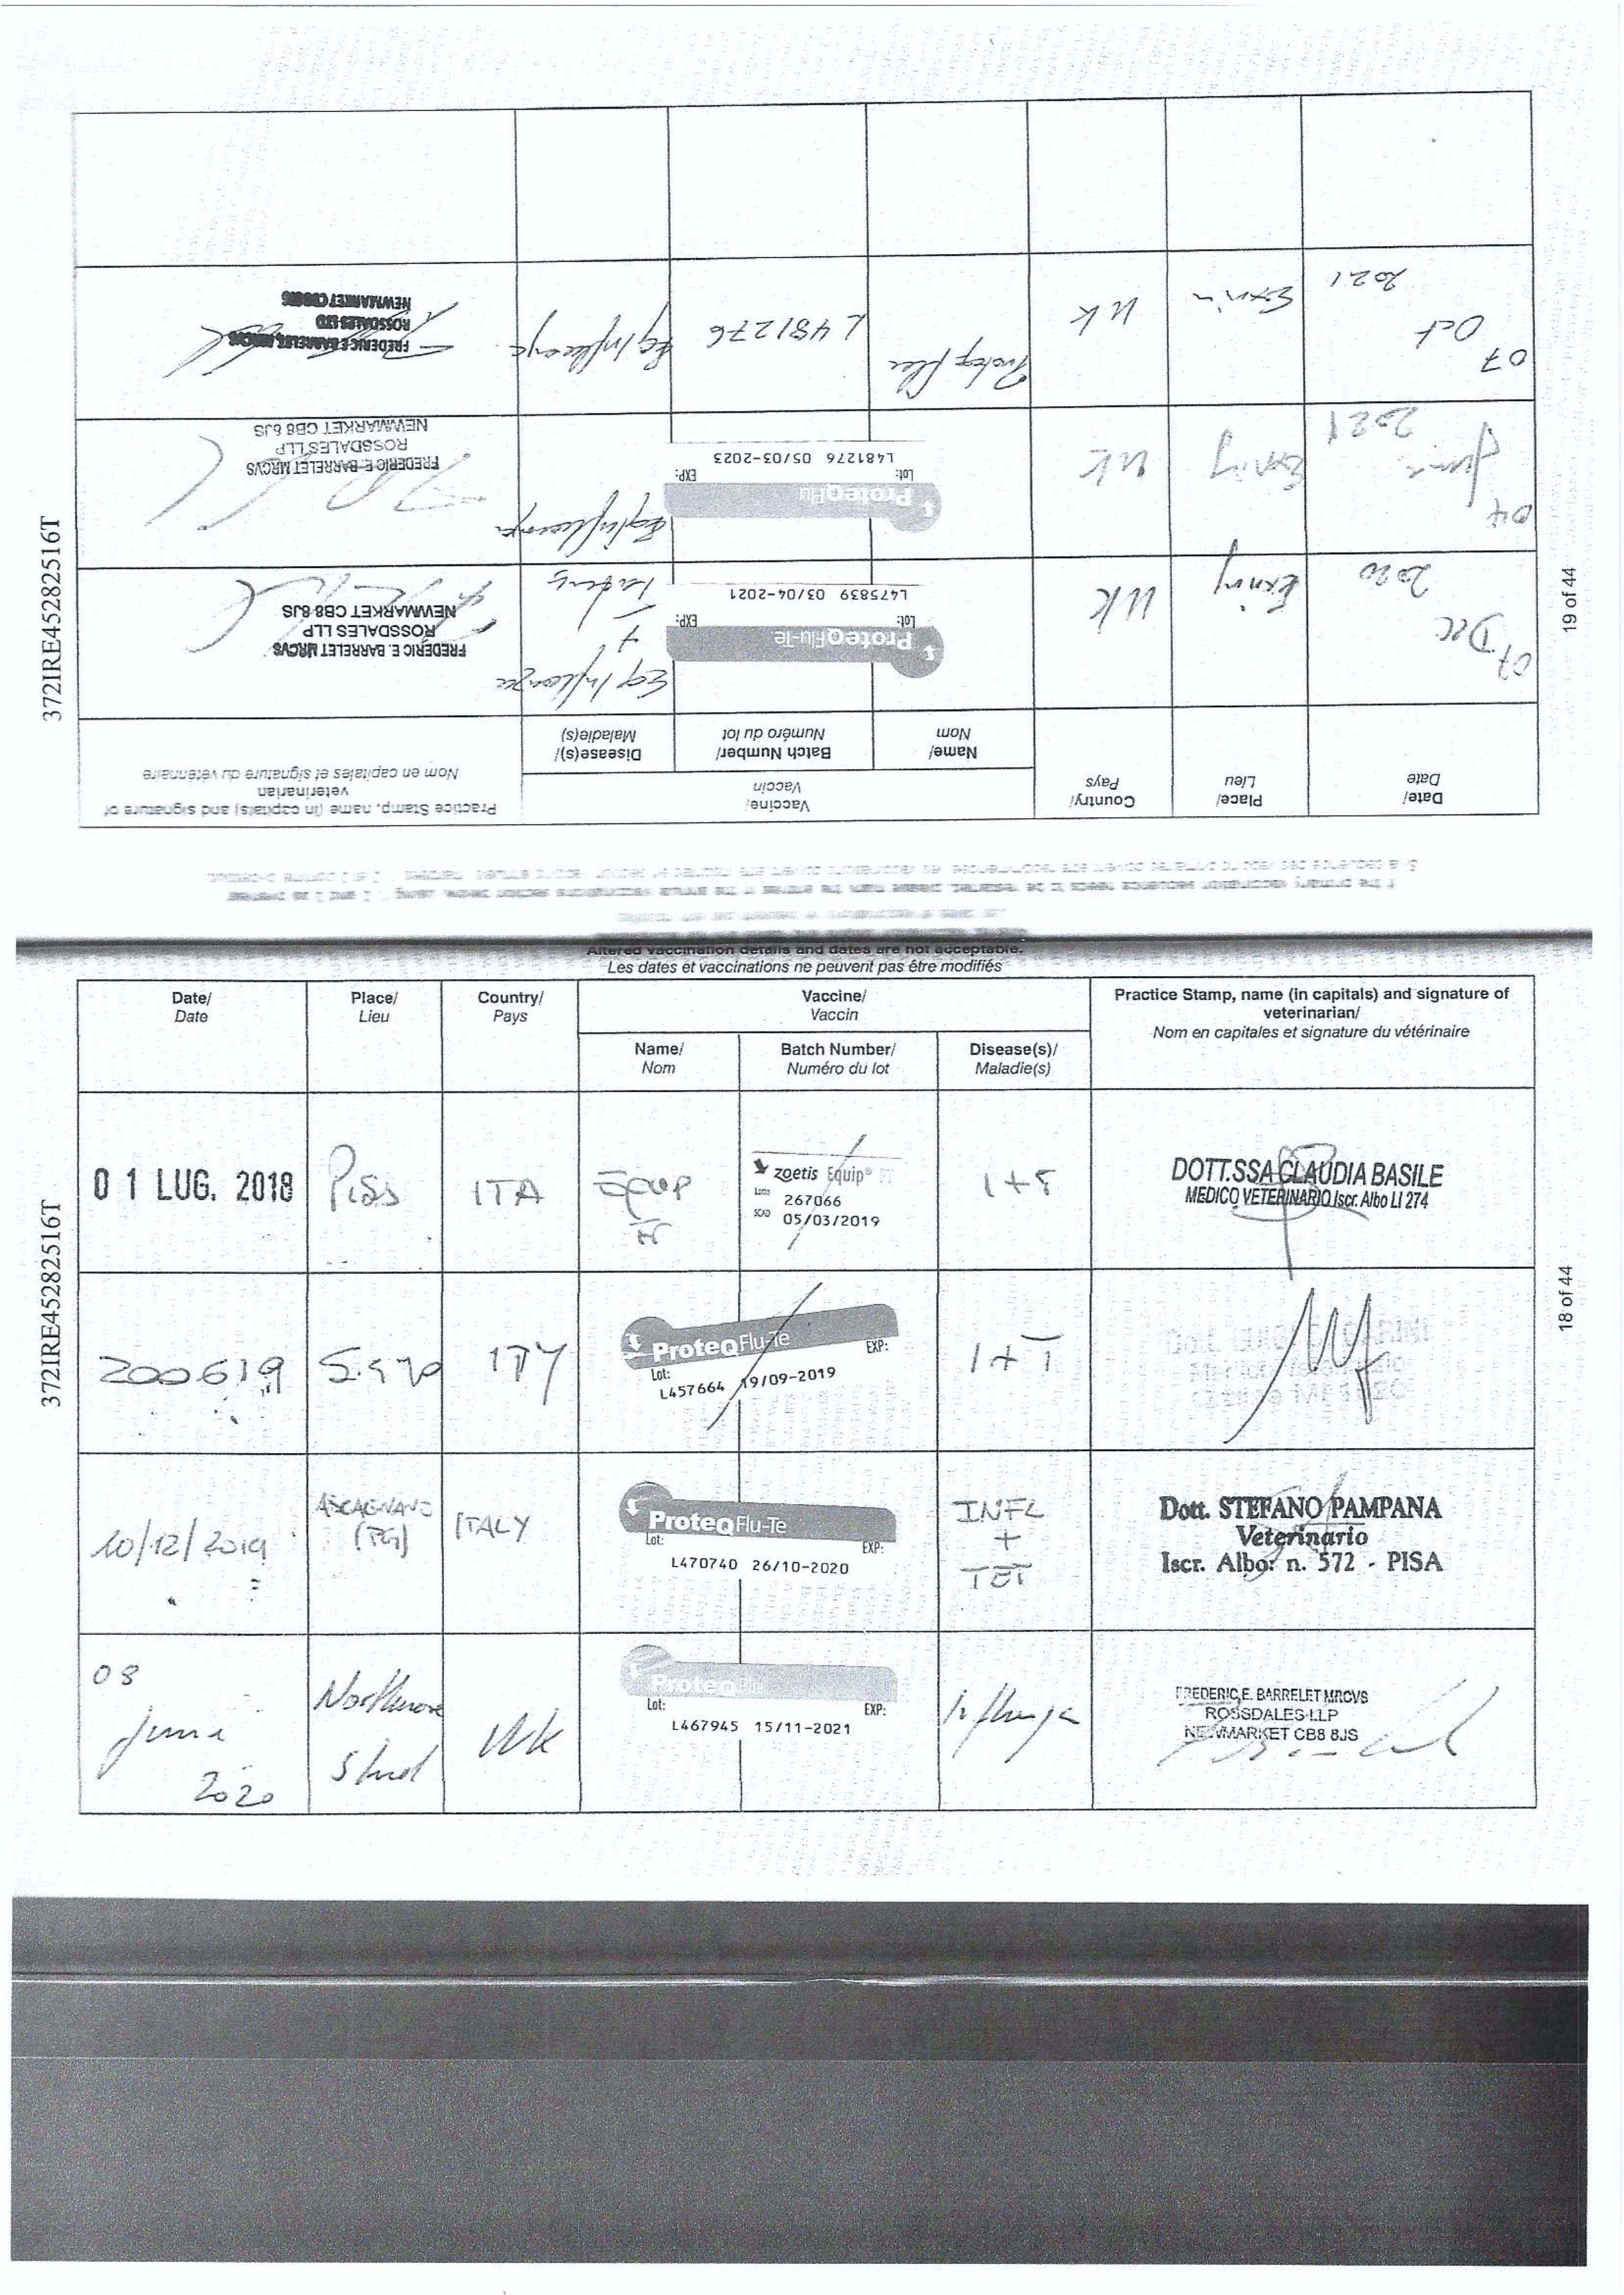 Altered vaccination details and dates are not acceptable.
Les dates et vaccinations ne peuvent pas être modifiés
Date/
Date
Place/
Lieu
Country/
Pays
Vaccine/
Vaccin
Name/
Nom
Batch Number/
Numéro du lot
Disease(s)/
Maladie(s)
Practice Stamp, name (in capitals) and signature of
veterinarian/
Nom en capitales et signature du vétérinaire
01 LUG. 2018
ITA
zoetis Equip®
267066
SCAD 05/03/2019
DOTT.SSA CLAUDIA BASILE
MEDICO VETERINARIO Iscr. Albo LI 274
200619
ITY
ProteqFlu-Te
Lot: EXP:
L457664 19/09-2019
I+T
10/12/2019
(PG)
ITALY
ProteqFlu-Te
Lot: EXP:
L470740 26/10-2020
INFL
+
TET
Dott. STEFANO PAMPANA
Veterinario
Iscr. Albo: n. 572 - PISA
08
June
2020
Stud
UK
ProteqFlu
Lot: EXP:
L467945 15/11-2021
FREDERIC E. BARRELET MRCVS
ROSSDALES LLP
NEWMARKET CB8 8JS
372IRE45282516T
18 of 44
Date/
Date
Place/
Lieu
Country/
Pays
Vaccine/
Vaccin
Name/
Nom
Batch Number/
Numéro du lot
Disease(s)/
Maladie(s)
Practice Stamp, name (in capitals) and signature of
veterinarian
Nom en capitales et signature du vétérinaire
07
Dec
2020
Exning
UK
ProteqFlu-Te
Lot: EXP:
L475839 03/04-2021
Eq Influenza
+
FREDERIC E. BARRELET MRCVS
ROSSDALES LLP
NEWMARKET CB8 8JS
04
June
2021
Exning
UK
ProteqFlu
Lot: EXP:
L481276 05/03-2023
Eq Influenza
FREDERIC E. BARRELET MRCVS
ROSSDALES LLP
NEWMARKET CB8 8JS
07
Oct
2021
UK
Proteq flu
L481276
Eq Influenza
FREDERIC E BARRELET, MRCVS
ROSSDALES LTD
NEWMARKET
372IRE45282516T
19 of 44